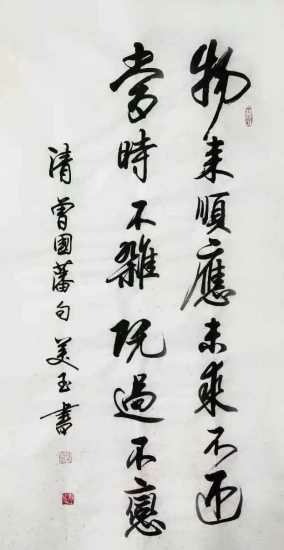 物来順應未來不迎
當時不雜既過不戀
清曾國藩句美玉書